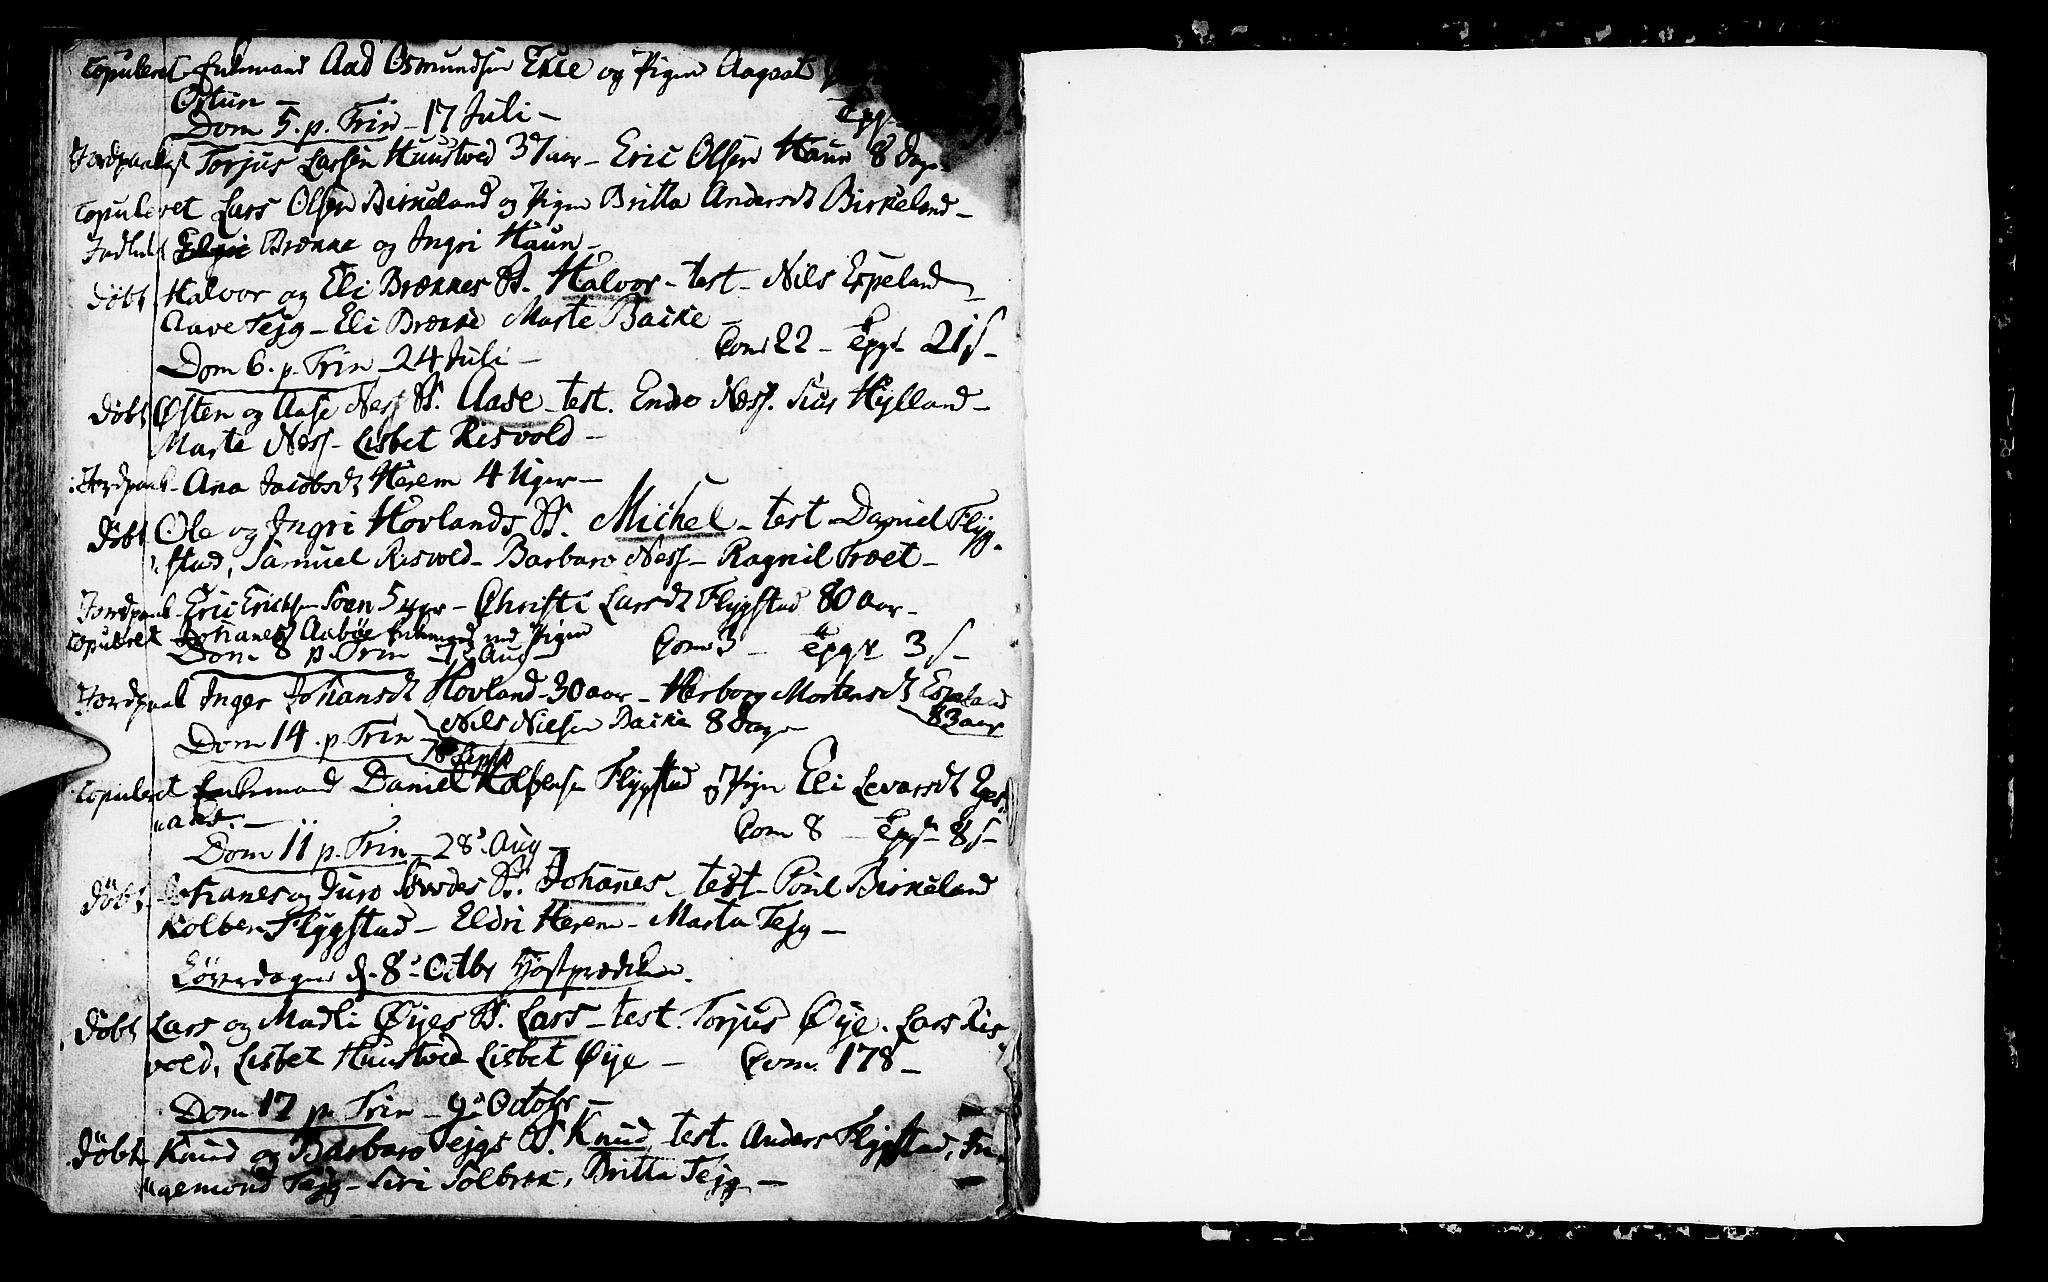 Copuleret Enkemand Aad Osmundsen Eike og Pigen Aagaat
Østun –
Dom 5. p. Trin – 17 Juli –
Jordpaakast Torjus Larsen Huustved 37 aar – Eric Olsen Haun 8 dage
Copuleret Lars Olsen Birkeland og Pigen Britta Andersdt Birkeland –
Indled Brænne og Ingri Haun –
döbt Halvor og Eli Brænnes B. Halvor – test – Nils Espeland
Aave Tejg – Eli Brænne Marte Backe –
Com 22 – Epgr 21 s –
Dom 6. p. Trin – 24 Juli –
döbt Østen og Aase Ness B. Aase – test. Endre Ness. Siur Hylland –
Marte Ness – Lisbet Risvold –
Jordpaak – Ana Jacobsdt Herem 4 Uger –
döbt Ole og Ingri Hovlands B. Michel – test – Daniel Flyg-
stad, Samuel Risvold – Barbaro Ness – Ragnil Træet –
Jordpaak Eric Erichsen 5 – Christi Larsdt Flygstad 80 aar –
Copuleret Johanes Aabøe Enkemand med Pigen
Dom 8 p. Trin – Aug – Com 3 – Epgr 3 s –
Jordpaak Inger Johansdt Hovland – 30 aar – Herborg Mortensdt Espeland
83 aar
Nils Nielsen Backe 8 Dage –
Dom 14. p. Trin – 18 Septb
Copuleret Enkemand Daniel Kolbensen Flygstad og Pigen Eli Levarsdt Eges-
Com 8 – Epgr 8 s –
Dom 11 p. Trin – 28 Aug –
döbt Johanes og Guro B. Johanes – test – Poul Birkeland
Kolben Flygstad – Eldri Herem – Marta Tejg –
Løverdagen d. 8 Octbr Høstprædiken.
döbt Lars og Madli Øyes B. Lars – test. Torjus Øye. Lars Ris-
vold, Lisbet Huustved Lisbet Øye – Com. 178 –
Dom 17 p. Trin – 9 Octobr –
döbt Knud og Barbaro Tejgs B. Knud test. Anders Flygstad, In-
gemond Tejg – Siri Solbrek, Britta Tejg –